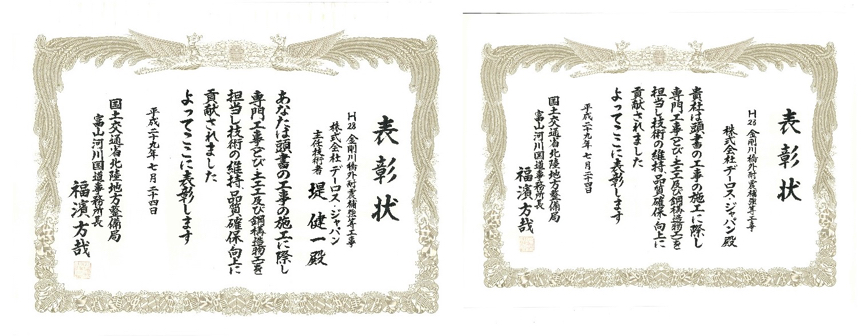 表彰状
H28金剛川橋外耐震補強等工事
株式会社デーロス・ジャパン
主任技術者 堤 健一殿
あなたは頭書の工事の施工に際し
専門工事(とび・土工及び鋼構造物)を
担当し技術の維持、品質確保・向上に
貢献されました
よってここに表彰します
平成二十九年七月二十四日
国土交通省北陸地方整備局
富山河川国道事務所長
福濱方哉
表彰状
H28金剛川橋外耐震補強等工事
株式会社デーロス・ジャパン殿
貴社は頭書の工事の施工に際し
専門工事(とび・土工及び鋼構造物)を
担当し技術の維持、品質確保・向上に
貢献されました
よってここに表彰します
平成二十九年七月二十四日
国土交通省北陸地方整備局
富山河川国道事務所長
福濱方哉